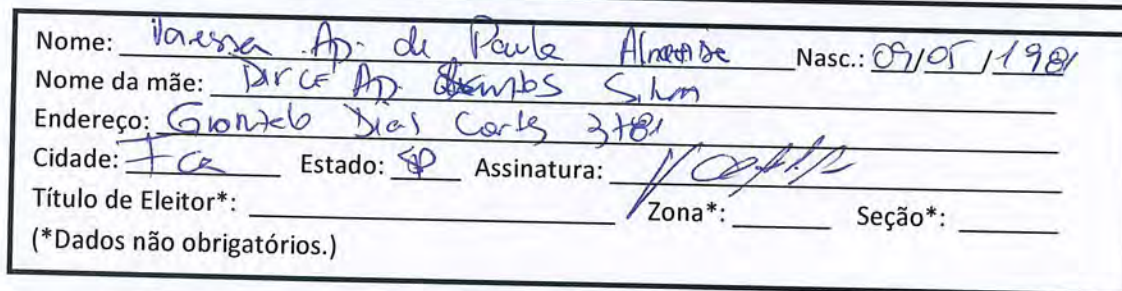 Nome: Vanessa Ap. de Paula Almeida Nasc.: 09/05/1981
Nome da mãe: Dirce Ap. Santos Silva
Endereço: Dias 3781
Cidade: Estado: SP Assinatura:
Título de Eleitor*: Zona*: Seção*:
(*Dados não obrigatórios.)